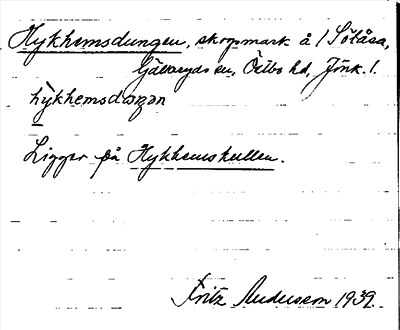 Hykhemsdungen, skogsmark å 1 Sötåsa,
Gällaryds sn, Östbo hd, Jönk. l.
hykhemsdɷŋən
Ligger på Hykhemskullen.
Fritz Andersson 1939